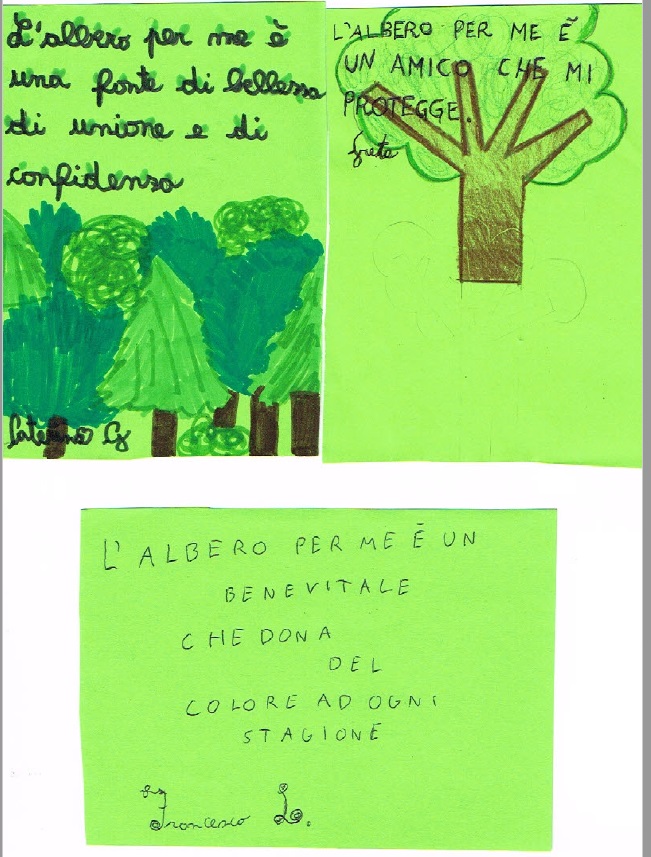 L'albero per me è
una fonte di bellezza
di unione e di
confidenza
Caterina G
L'ALBERO PER ME È
UN AMICO CHE MI
PROTEGGE.
Greta
L'ALBERO PER ME È UN
BENE VITALE
CHE DONA
DEL
COLORE AD OGNI
STAGIONE
by
Francesco L.